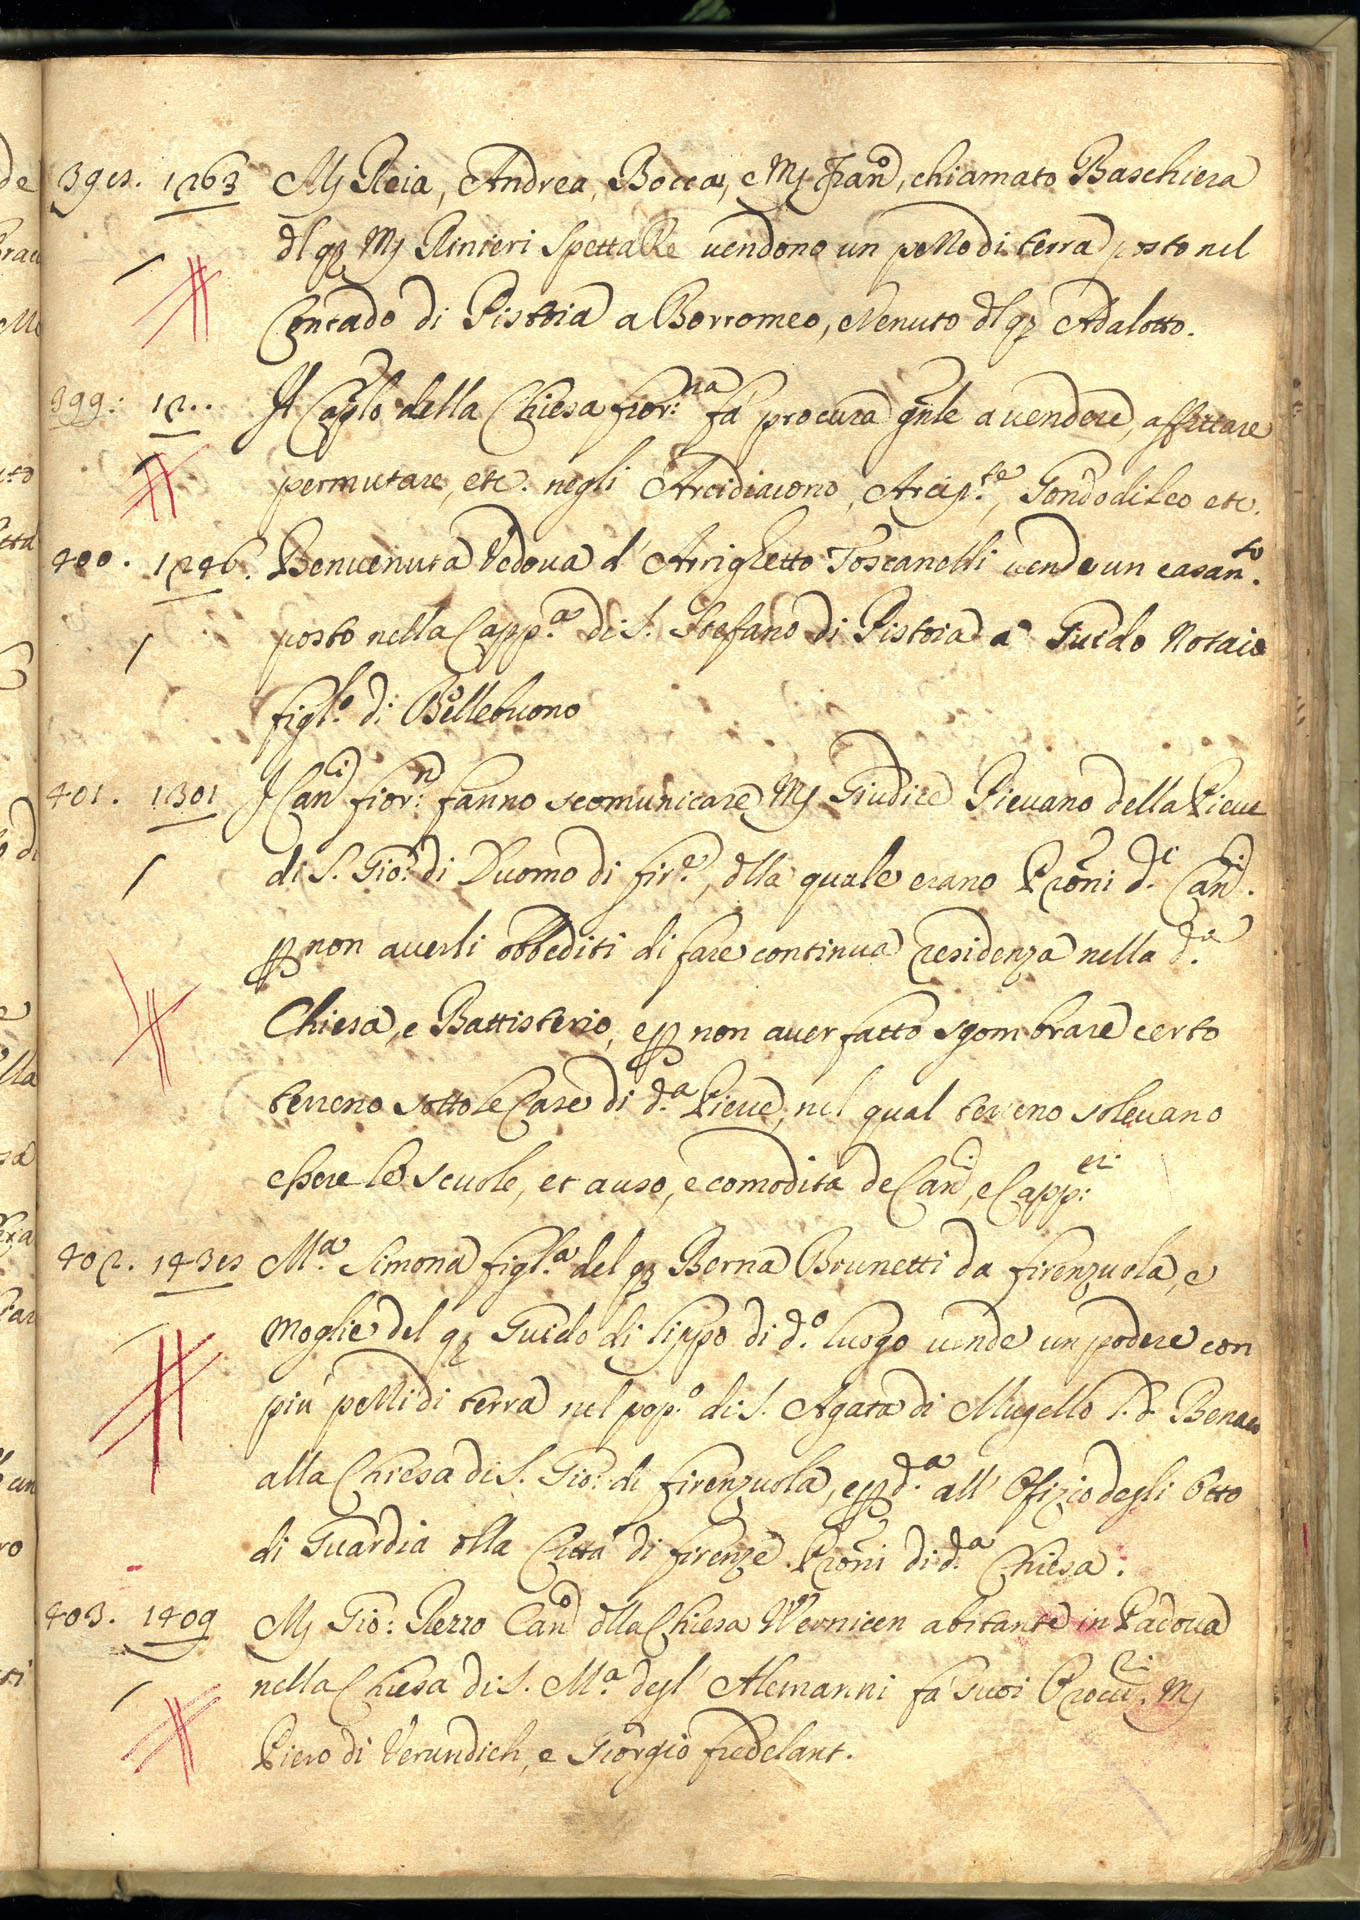 398. 1263 Mſ Reia, Andrea, Bocca, e Mſ Franº, chiamato Baschiera
dl qᷓ Mſ Rinieri Spettalke vendono un pezzo di terra posto nel
Contado di Pistoia a Borromeo, e Venuto dl qᷓ Adalotto.
399: 12.. Il Caplo della Chiesa fior:na fà procura gnle a vendere, affittare
permutare, etc. negli Arcidiacono, Arcip.te, Gondo di Leo etc.
400. 1246. Benvenuta Vedova d' Arrighetto Toscanelli vende un casam.to
posto nella Capp.a di S. Stefano di Pistoia a Guido Notaio
figl.o di Bellebuono
401. 1301 I Cani fior:ni fanno scomunicare Mſ Giudice Pievano della Pieve
di S. Gio: di Duomo di fir.e, dlla quale erano Proni d.i Can.i
p non averli obbediti di fare continua residenza nella d.a
Chiesa, e Battisterio, e p non aver fatto sgombrare certo
terreno sotto le Case di d.a Pieve, nel qual terreno solevano
essere le scuole, et a uso, e comodità de Can.i, e Capp:ni
402. 1438 M.a Simona figl.a del qᷓ Berna Brunetti da firenzuola, e
Moglie del qᷓ Guido di lippo di d.o luogo vende un podere con
più pezzi di terra nel pop.o di S. Agata di Mugello l. d. Benaco
alla Chiesa di S. Gio: di firenzuola, e p d.a all' Ofizio degli Otto
di Guardia dlla Città di firenze Proni di d.a Chiesa.
403. 1409 Mſ Gio: Rezzo Canº dlla Chiesa Wernicen abitante in Padova
nella Chiesa di S. M.a degl' Alemanni fà suoi Procu.ri Mſ
Piero di Verundich, e Giorgio fredelant.